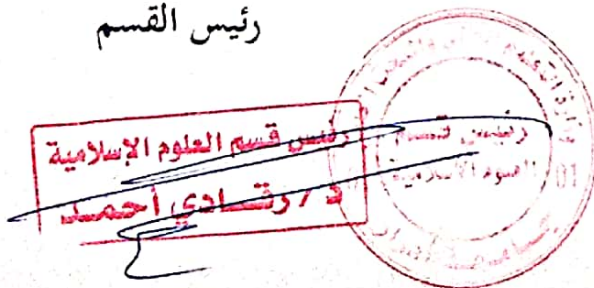 رئيس القسم
رئيس قسم العلوم الإسلامية
د/رقادي أحمد
رئيس قسم
العلوم الإسلامية
01